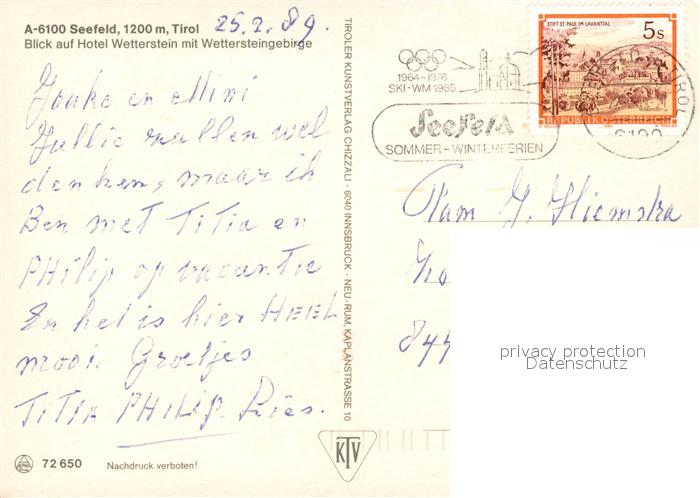 A-6100 Seefeld, 1200 m, Tirol
25.2.89.
Blick auf Hotel Wetterstein mit Wettersteingebirge
Jouke en Mini
Jullie zullen wel
denken, maar ik
Ben met TiTia en
PHilip op vacantie
En het is hier HEEL
mooi. Groetjes
TiTia PHILIP. Ries.
72 650
Nachdruck verboten!
TIROLER KUNSTVERLAG CHIZZALI · 6040 INNSBRUCK - NEU-RUM, KAPLANSTRASSE 10
KTV
1964-1976
SKI-WM 1985
Seefeld
SOMMER-WINTERFERIEN
STIFT ST. PAUL IM LAVANTTAL
5s
REPUBLIK ÖSTERREICH
TIROL
6100
Fam J. Hiemstra
844
privacy protection
Datenschutz